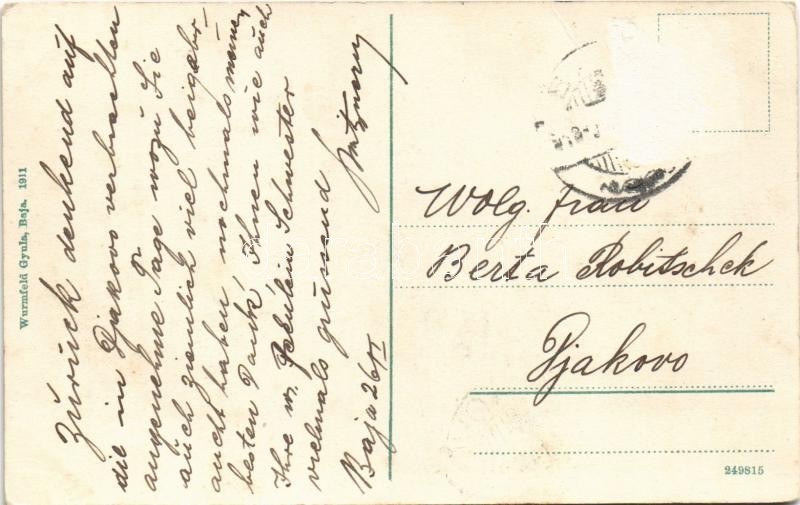 Zurück denkend auf
die in Djakovo verbrachten
angenehme Tage wozu Sie
auch ziemlich viel beigebr-
aucht haben nochmals meinen
besten Dank! Ihnen wie auch
Ihre w. Fräulein Schwester
vielmals grüssend
Baja 26/VI
Wolg. Frau
Berta Robitschek
Djakovo
Wurmfeld Gyula, Baja. 1911
249815